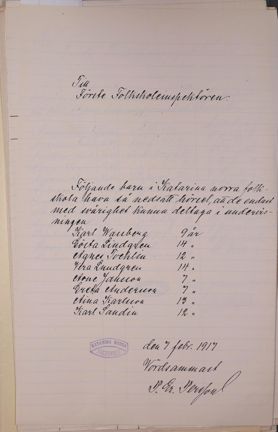 Till
Förste Folkskoleinspektören.
Följande barn i Katarina norra folk-
skola hava så nedsatt hörsel, att de endast
med svårighet kunna deltaga i undervis-
ningen
Karl Wanberg 9 år
Gösta Lindgren 14 "
Agnes 12 "
Lundgren 14 "
Arne Jansson 7 "
Greta Andersson 7 "
Anna Karlsson 13 "
Karl Sandin 12 "
den 7 febr. 1917
Vördsammast
Persson
KATARINA NORRA